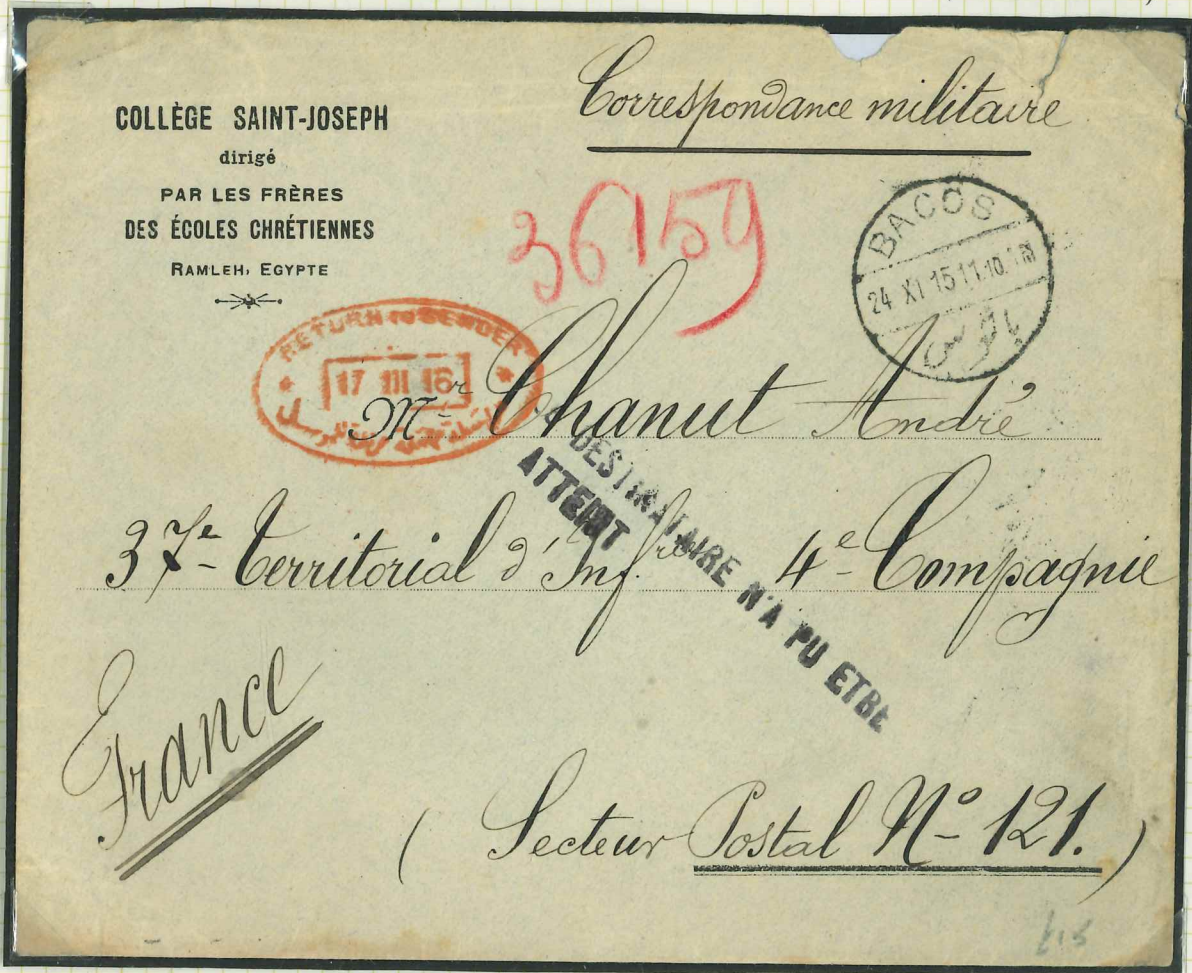 COLLÈGE SAINT-JOSEPH
dirigé
PAR LES FRÈRES
DES ÉCOLES CHRÉTIENNES
RAMLEH, EGYPTE
Correspondance militaire
36159
BACOS
24 XI 15 11.10
باكوس
RETURN TO SENDER
17 III 16
Mr Chanut André
LE DESTINATAIRE N'A PU ETRE
ATTEINT
37e Territorial d'Inf.rie 4e Compagnie
France
( Secteur Postal No 121. )